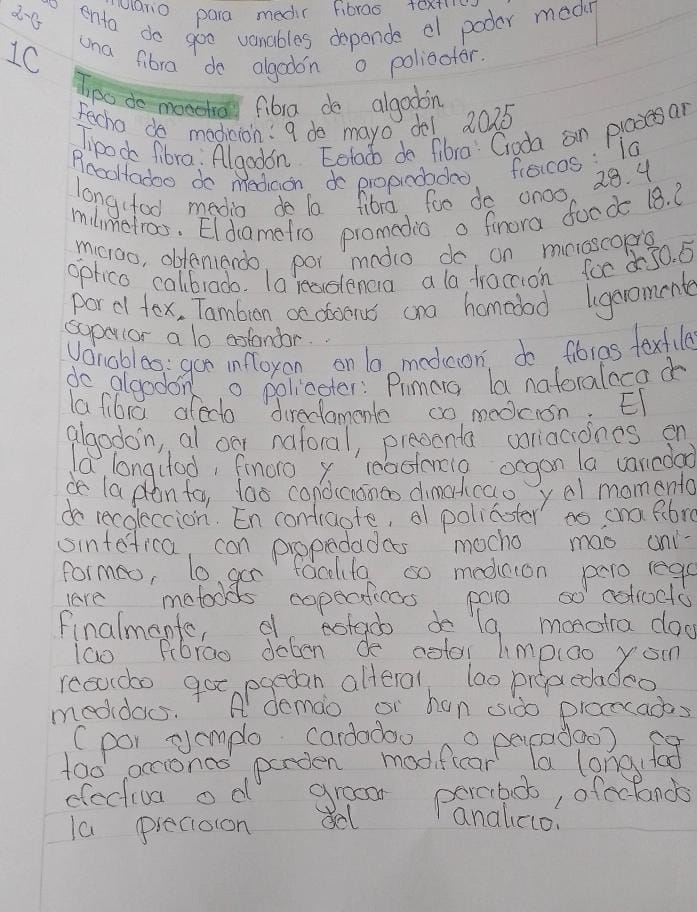 para medir fibras
2-G enta de que variables depende el poder medir
1C una fibra de algodón o poliester.
Tipo de muestra: fibra de algodón
Fecha de medición: 9 de mayo del 2025
Tipo de fibra: Algodón Estado de fibra: Cruda sin procesar
Resultados de medición de propiedades fisicas: la
longitud media de la fibra fue de unos 28.4
milimetros. El diametro promedio o finura fue de 18.2
micras, obteniendo por medio de un microscopio
óptico calibrado. la resistencia a la tracción fue de 30.5
por el tex. Tambien se observó una humedad ligeramente
superior a lo estandar..
Variables: que influyen en la medición de fibras textiles
de algodón o poliester: Primera la naturaleca de
la fibra afecta directamente su medición. El
algodón, al ser natural, presenta variaciones en
la longitud, finura y resistencia segun la variedad
de la planta, las condiciones climaticas y el momento
de recoleccion. En contraste, el poliéster es una fibra
sintetica con propiedades mucho mas uni-
formes, lo que facilita su medición pero requ
iere metodos especificos para su estructu
Finalmente, el estado de la muestra
las fibras deben de estar limpias y sin
residuos que puedan alterar las propiedades
medidas. A demas si han sido procecadas
(por ejemplo cardadas o peinadas) es
tas acciones pueden modificar la longitud
efectiva o el grosor percibido, afectando
la precision del analicis.